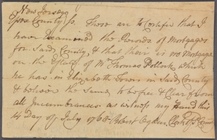 New Jersey
County Ss. These are to Certifie that I
have Examined the Records of Mortgages
for Said County & that there is no Mortgage
on the Estate of Mr Thomas Pollock, which
he has in Elizabeth Town in Said County
& believe the Same to be free & Clear from
all Incumbrances as witness my hand this
14 day of July 1766 Robert Ogden Clerk